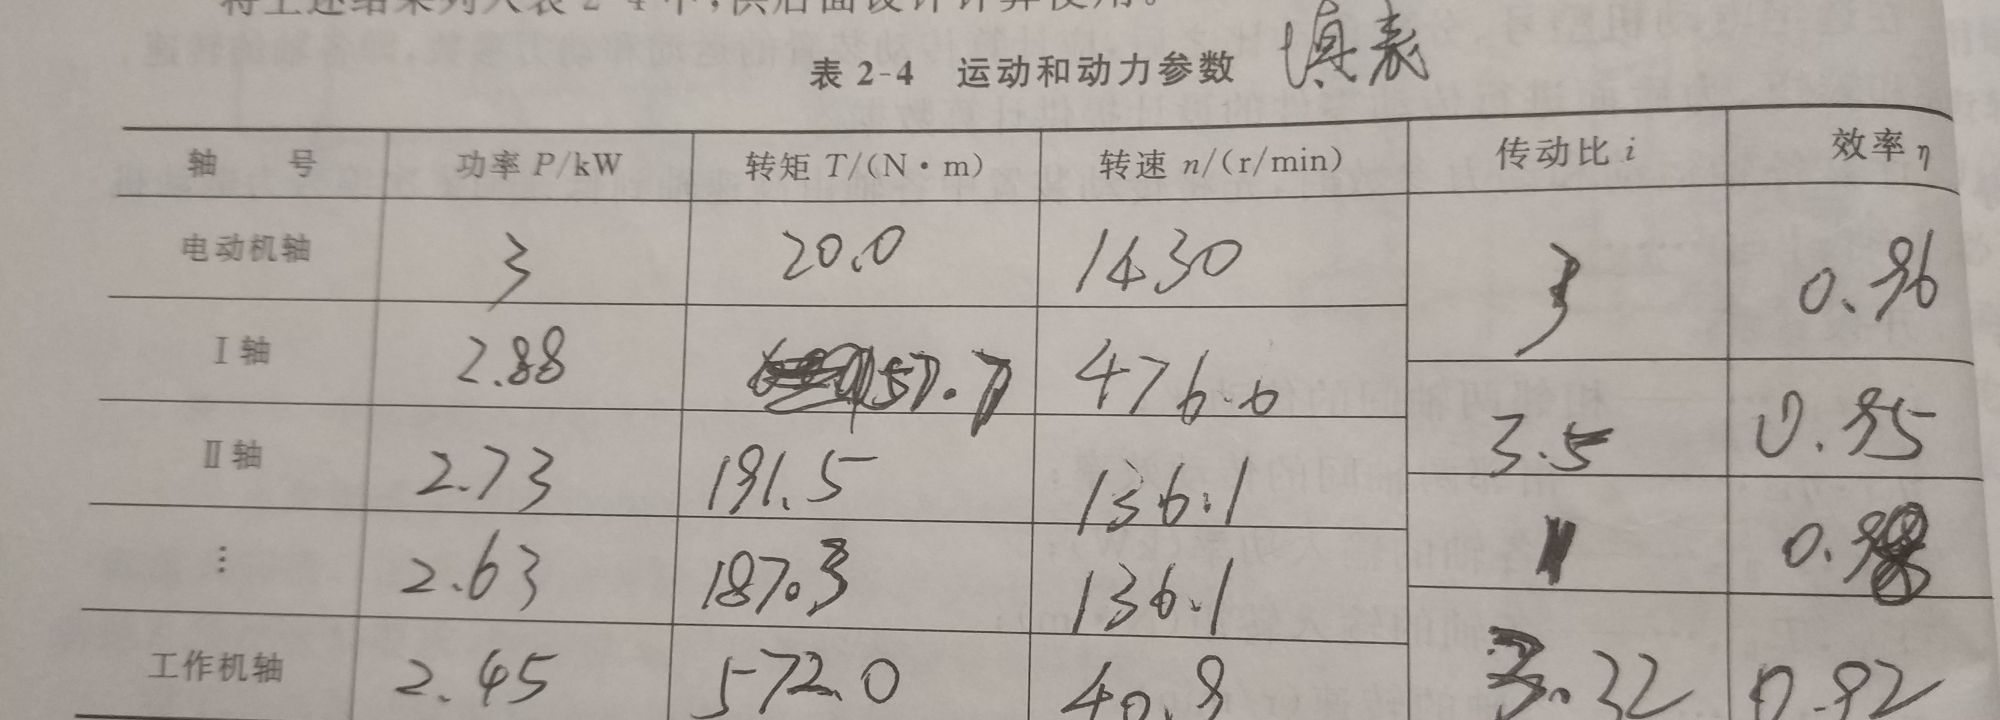 将上述结果列入表 2-4 中,供后面设计计算使用。
表 2-4 运动和动力参数 填表
轴 号 功率 P/kW 转矩 T/(N·m) 转速 n/(r/min) 传动比 i 效率 η
电动机轴 3 20.0 1430 3 0.96
Ⅰ轴 2.88 57.7 476.6
3.5 0.95
Ⅱ轴 2.73 191.5 136.1
1 0.98
⋮ 2.63 187.3 136.1
工作机轴 2.45 572.0 40.9 3.32 0.92